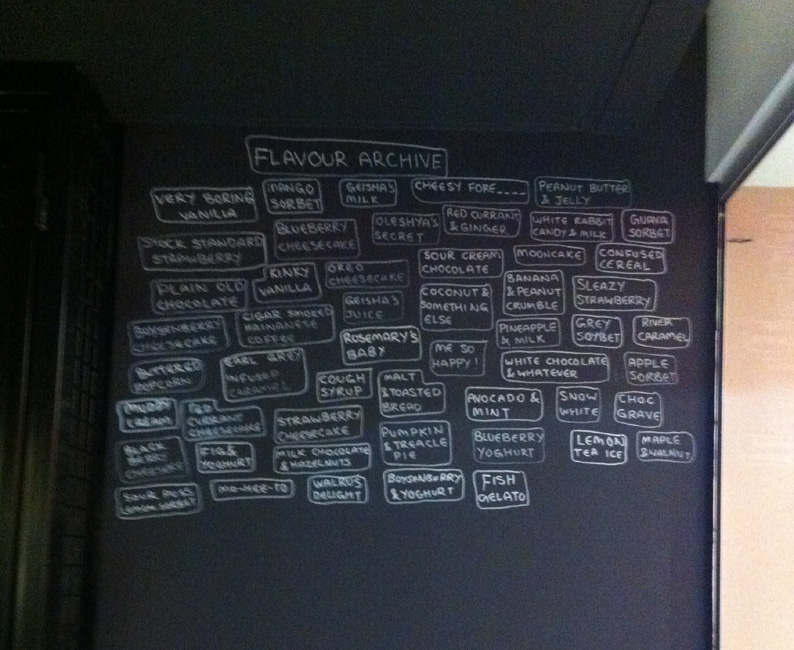 FLAVOUR ARCHIVE
VERY BORING
VANILLA
MANGO
SORBET
GEISHA'S
MILK
CHEESY FORE____
PEANUT BUTTER
& JELLY
STOCK STANDARD
STRAWBERRY
BLUEBERRY
CHEESECAKE
OLESHYA'S
SECRET
RED CURRANT
& GINGER
WHITE RABBIT
CANDY & MILK
GUAVA
SORBET
PLAIN OLD
CHOCOLATE
KINKY
VANILLA
OREO
CHEESECAKE
SOUR CREAM
CHOCOLATE
MOONCAKE
CONFUSED
CEREAL
BOYSENBERRY
CHEESECAKE
CIGAR SMOKED
HAINANESE
COFFEE
GEISHA'S
JUICE
COCONUT &
SOMETHING
ELSE
BANANA
& PEANUT
CRUMBLE
SLEAZY
STRAWBERRY
BUTTERED
POPCORN
EARL GREY
INFUSED
CARAMEL
ROSEMARY'S
BABY
ME SO
HAPPY!
PINEAPPLE
& MILK
GREY
SOYBET
RIVER
CARAMEL
COUGH
SYRUP
MALT
& TOASTED
BREAD
WHITE CHOCOLATE
& WHATEVER
APPLE
SORBET
MUDDY
CREAM
RED
CURRANT
CHEESECAKE
STRAWBERRY
CHEESECAKE
AVOCADO &
MINT
SNOW
WHITE
CHOC
GRAVE
BLACK
BERRY
CHEESECAKE
FIG &
YOGHURT
MILK CHOCOLATE
& HAZELNUTS
PUMPKIN
& TREACLE
PIE
BLUEBERRY
YOGHURT
LEMON
TEA ICE
MAPLE
& WALNUT
SOUR
LEMON SORBET
WALRUS
DELIGHT
BOYSENBERRY
& YOGHURT
FISH
GELATO